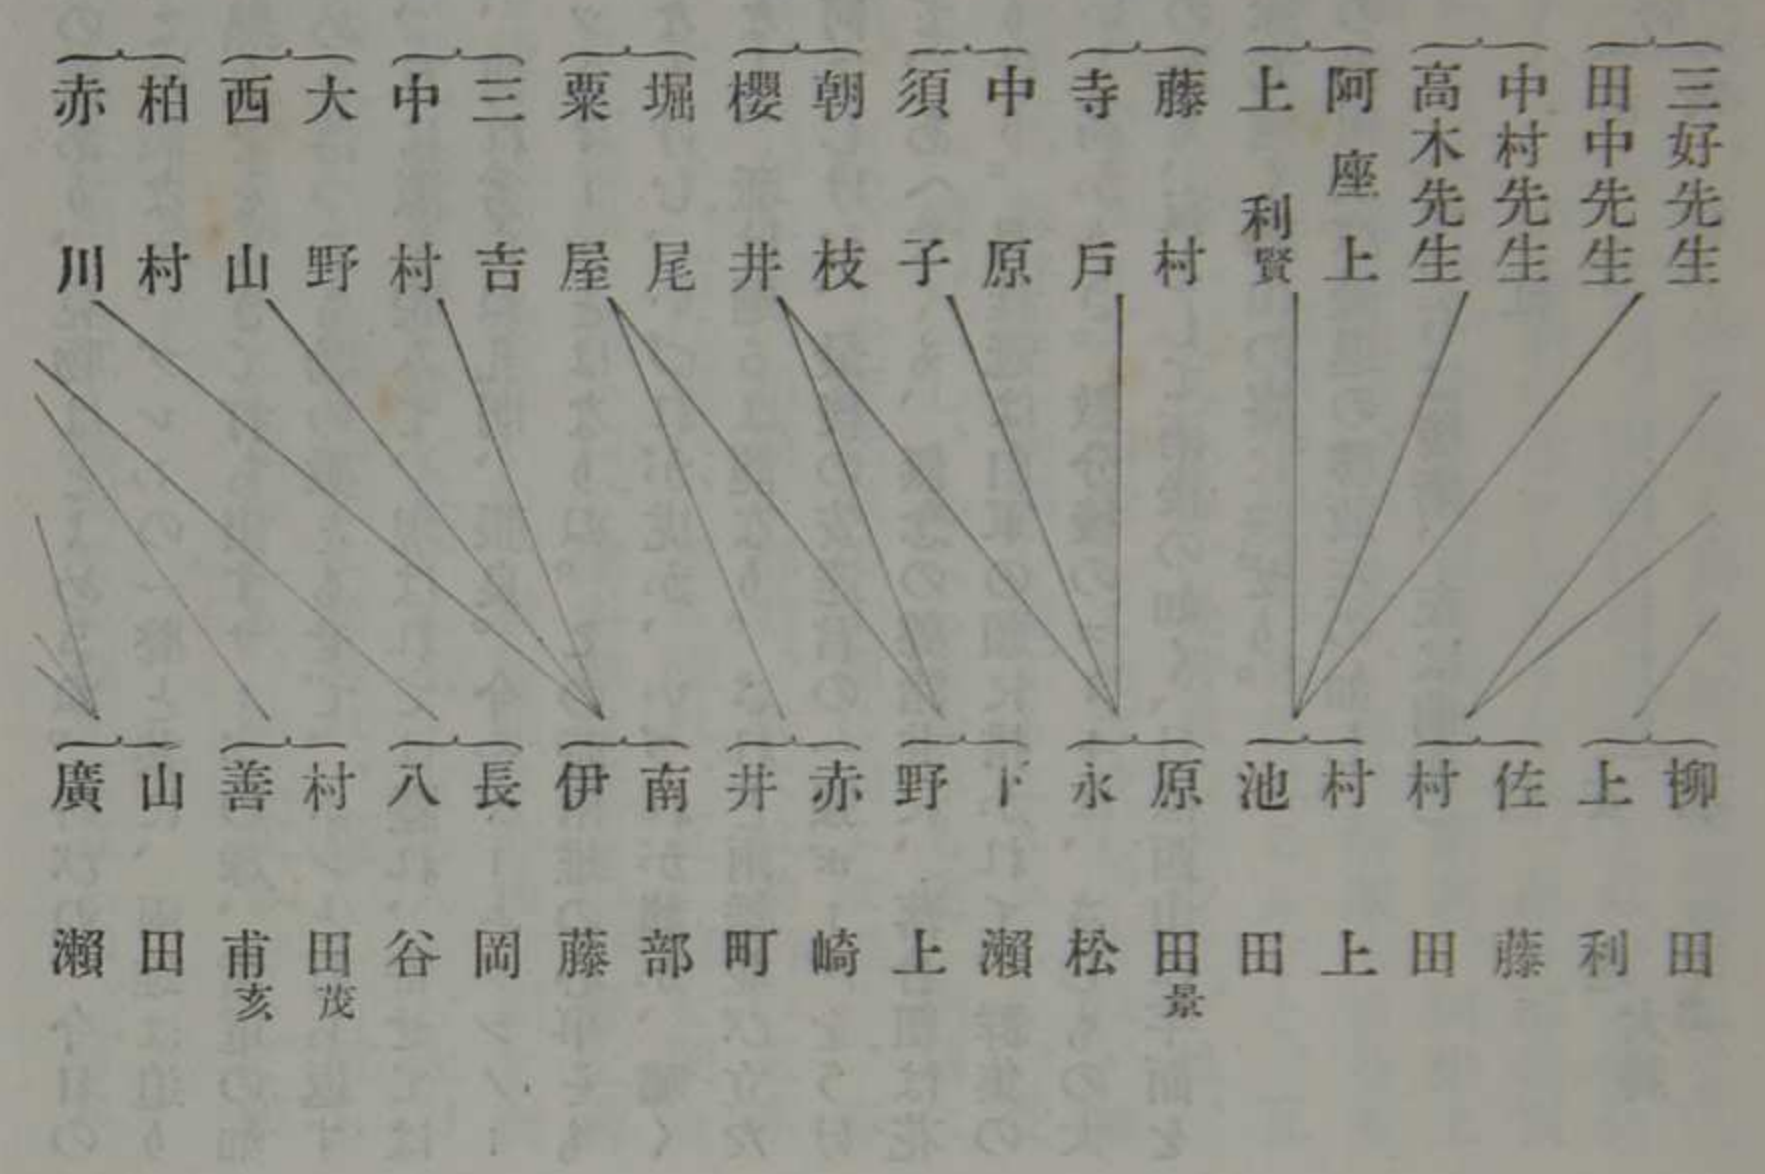 三好先生
田中先生
中村先生
高木先生
阿座上
上利賢
藤村
寺戸
中原
須子
朝枝
櫻井
堀尾
粟屋
三吉
中村
大野
西山
柏村
赤川
柳田
上利
佐藤
村田
村上
池田
原田景
永松
下瀬
野上
赤崎
井町
南部
伊藤
長岡
八谷
村田茂
善甫亥
山田
廣瀬